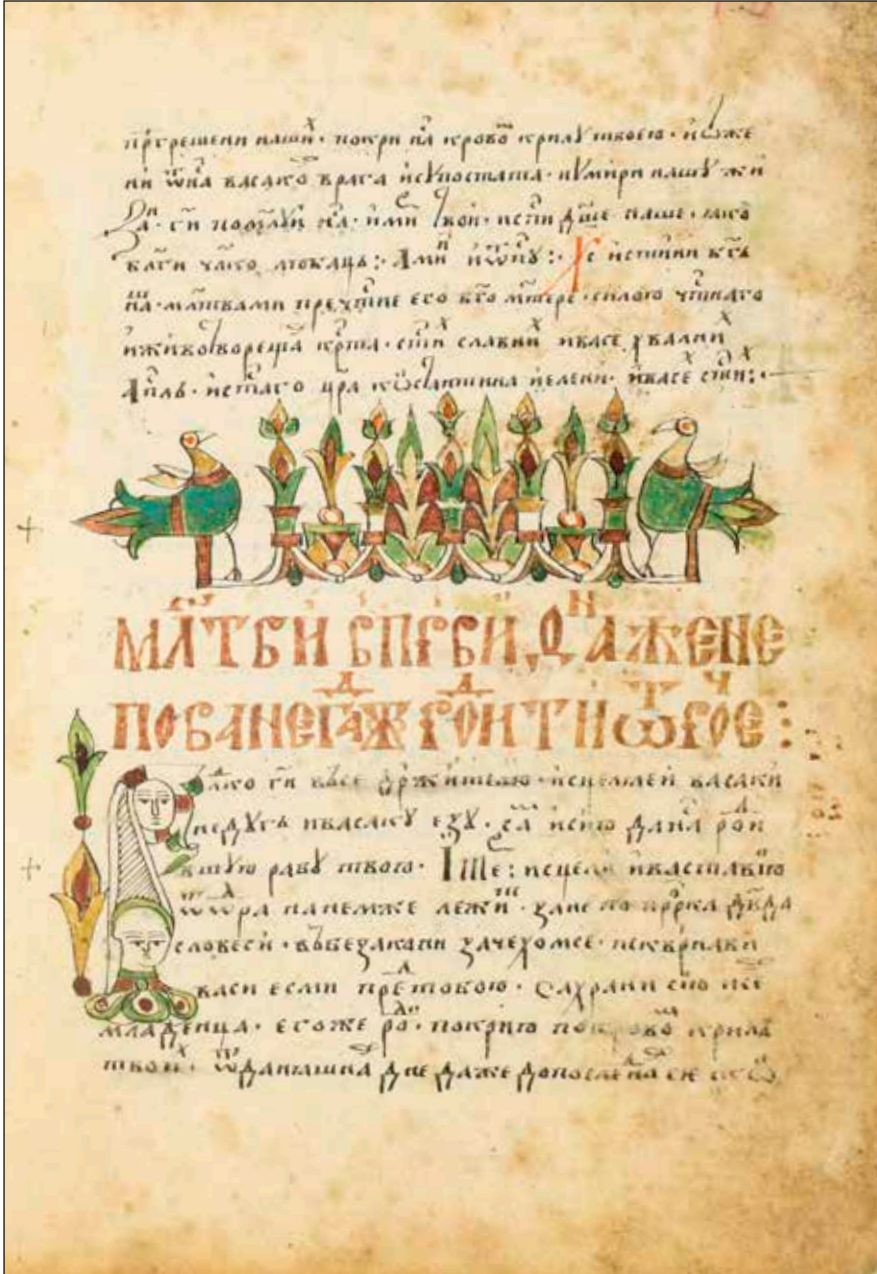 прⷭ҇грешени нашиⷯ · покри на кровоⷨ крилꙋ твоею · и ѿже
ни ѿ на васакоⷢ врага исꙋпостата · и ꙋмири нашꙋ жи
за · гⷭ҇и помлꙋи · и твои · и сп҃и дш҃е наше · ꙗко
благи чл҃ко любаць :· Амиⷩ и ѿпꙋ :· Хс истини бг҃ъ
нⷲа · мл҃твами пречтⷭ҇ие его бг҃о мт҃ере · силою чтⷭ҇наго
и животворещаⷢ крⷭ҇та · ст҃иⷯ славниⷯ и васе хвалниⷯ
апⷭ҇ль · и ст҃аго цр҃а костантина и елени · и васеⷯ ст҃иⷯ :·
МЛ҃ТВИ ВПРВИ, ДⷩА ЖЕНЕ
ПОВАНЕГⷣАЖ РОⷣИТИ ѾРОⷱЕ :
Влⷣко гⷭ҇и въсе дръжителю · исцелꙗеи васаки
недꙋгъ и васакꙋ езꙋ · саⷨ и сию данаⷭ роⷣи
вшꙋю рабꙋ твою · Име : исцели и
ѿ ѡⷣра на немже лежиⷮ · зане по прⷪ҇рка дв҃да
словеси · въ безакони зачехомсе · и сквриави
васи есми преⷣ тобою · сахрани сию и се
младенца · егоже роⷣ · покрию покровоⷨ крила
твоиⷯ · ѿ данашна дне даже до послеⷣна